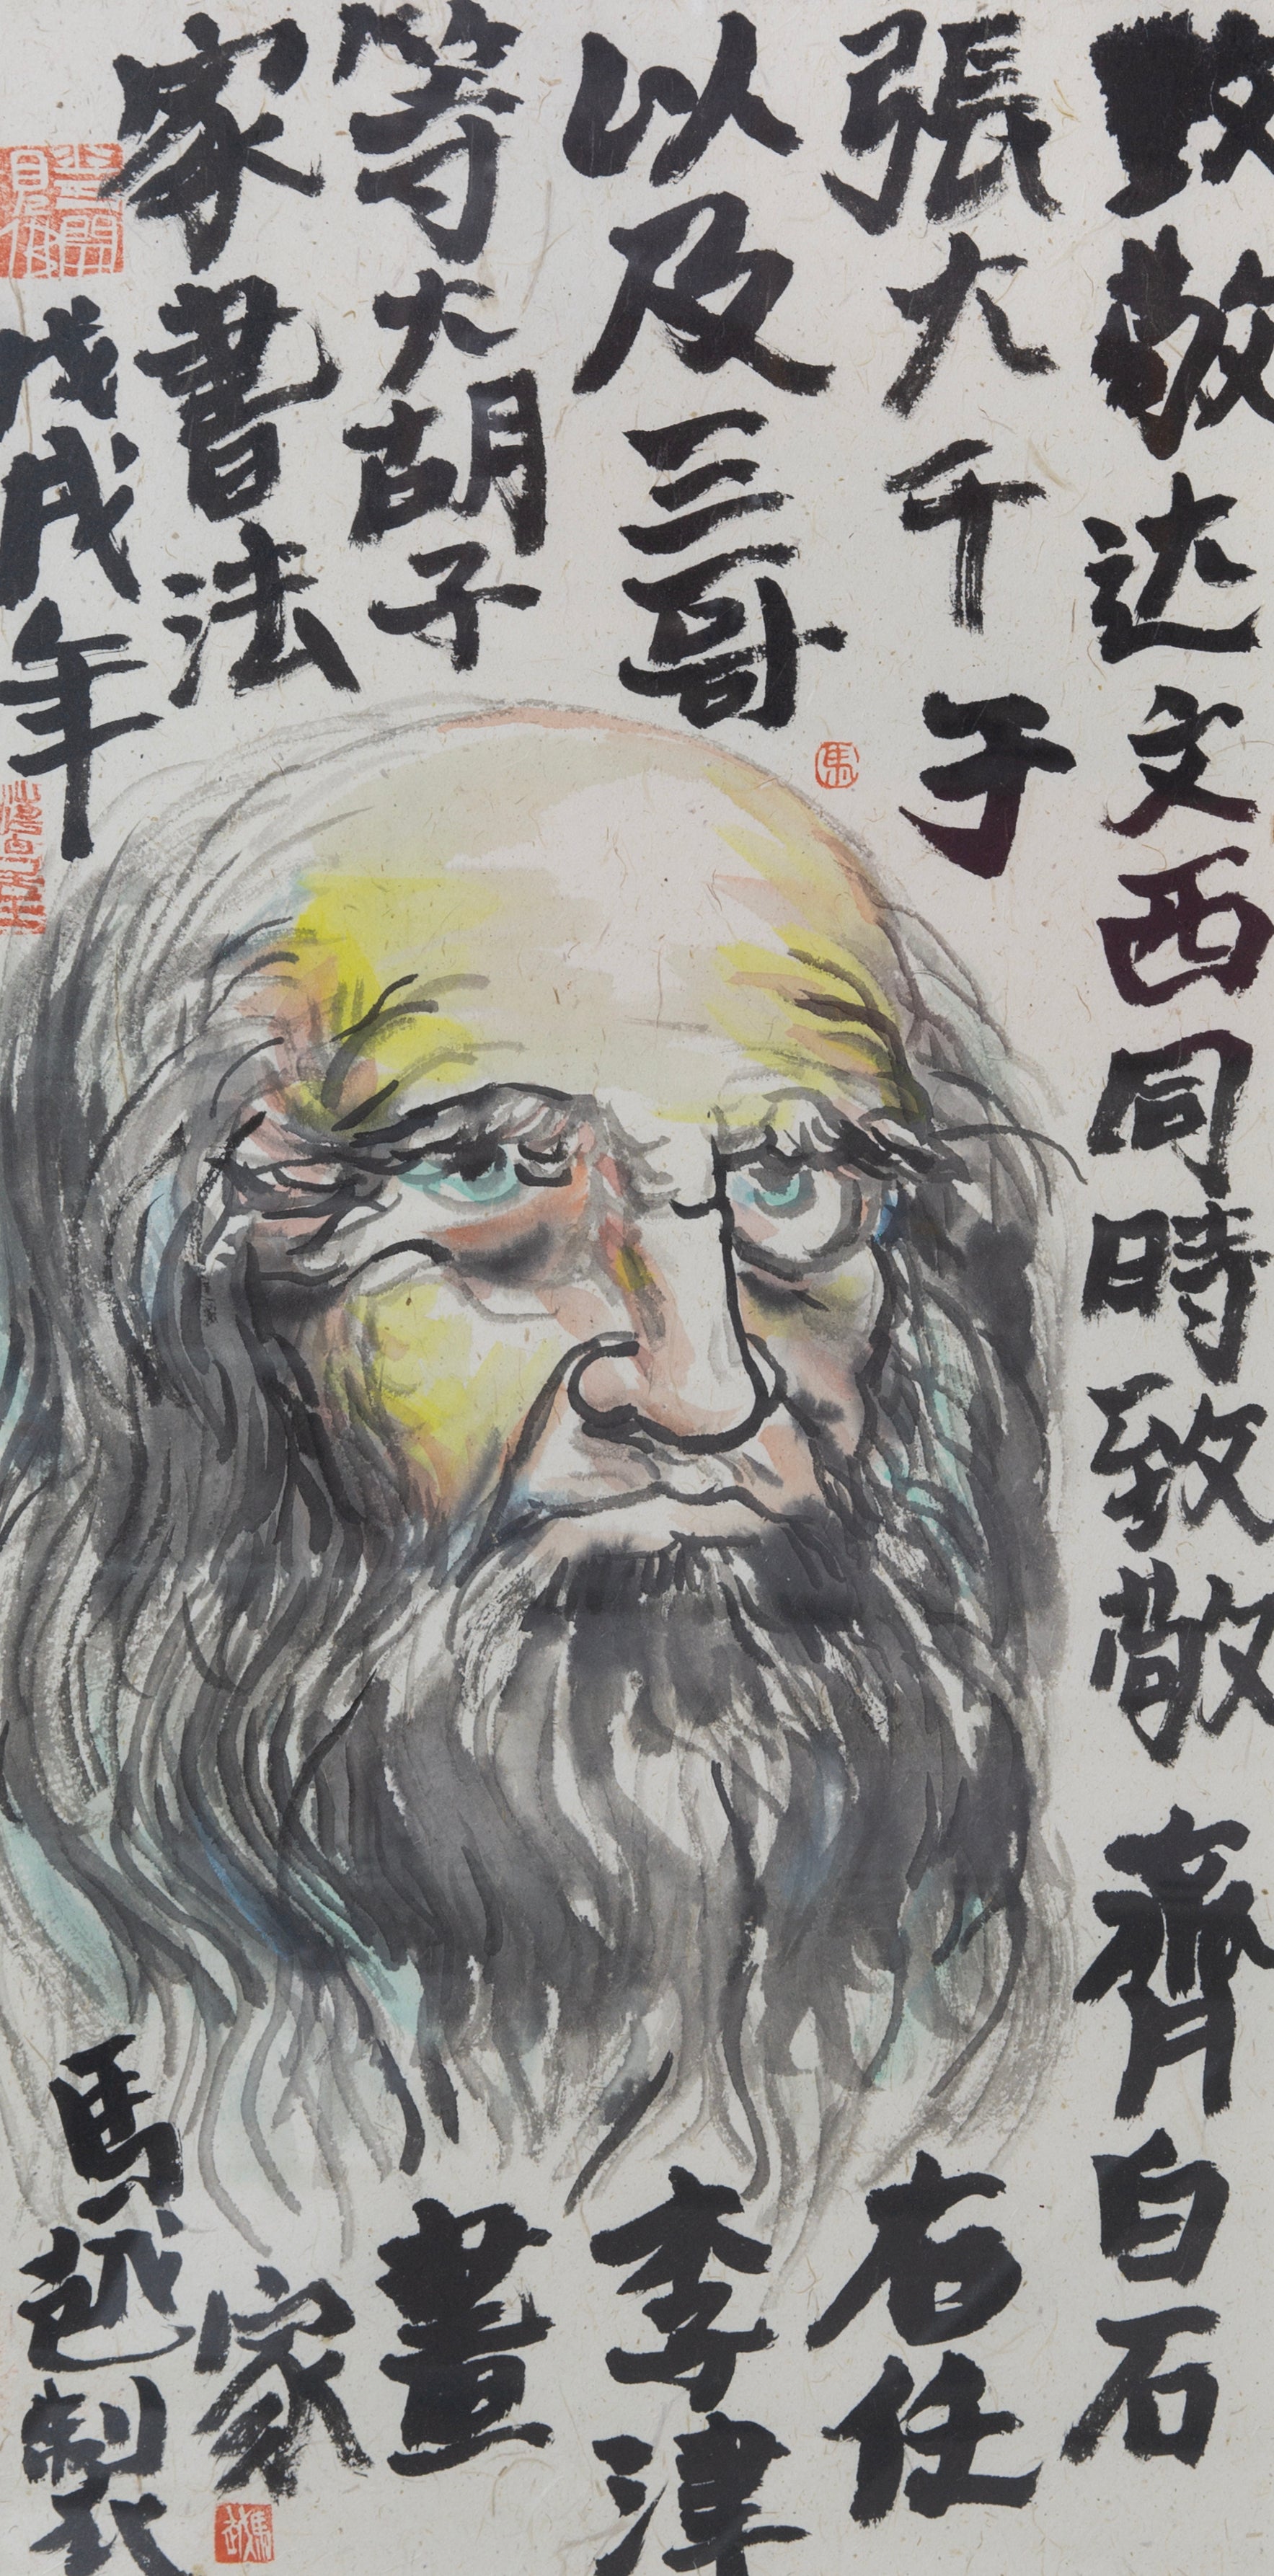 致敬达文西同時致敬齊白石
張大千于右任
以及三哥李津
等大胡子畫
家書法家
戊戌年馬製
馬